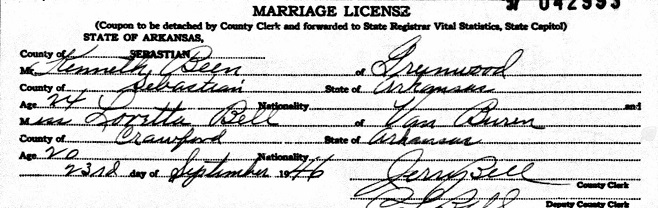 MARRIAGE LICENSE 042993
(Coupon to be detached by County Clerk and forwarded to State Registrar Vital Statistics, State Capitol)
STATE OF ARKANSAS,
County of SEBASTIAN
Mr. Kenneth Been of Greenwood
County of Sebastian State of Arkansas
Age 24 Nationality and
Miss Loretta Bell of Van Buren
County of Crawford State of Arkansas
Age 20 Nationality
23rd day of September 1946 Jerry Bell
County Clerk
Bell
Deputy County Clerk